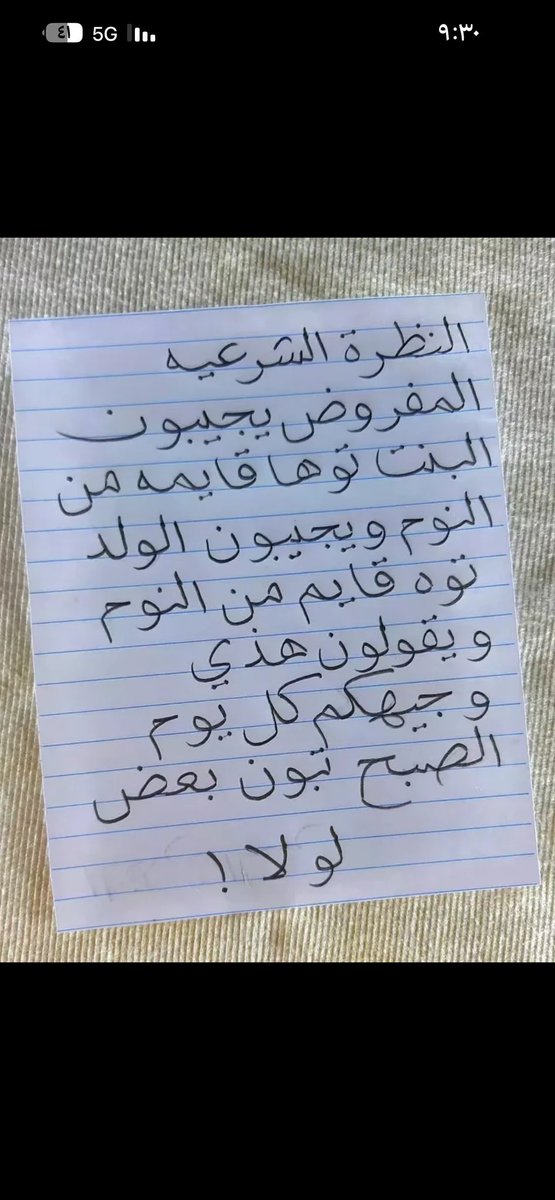 ٤١ 5G ٩:٣٠
النظرة الشرعيه
المفروض يجيبون
البنت توها قايمه من
النوم ويجيبون الولد
توه قايم من النوم
ويقولون هذي
وجيهكم كل يوم
الصبح تبون بعض
لو لا !